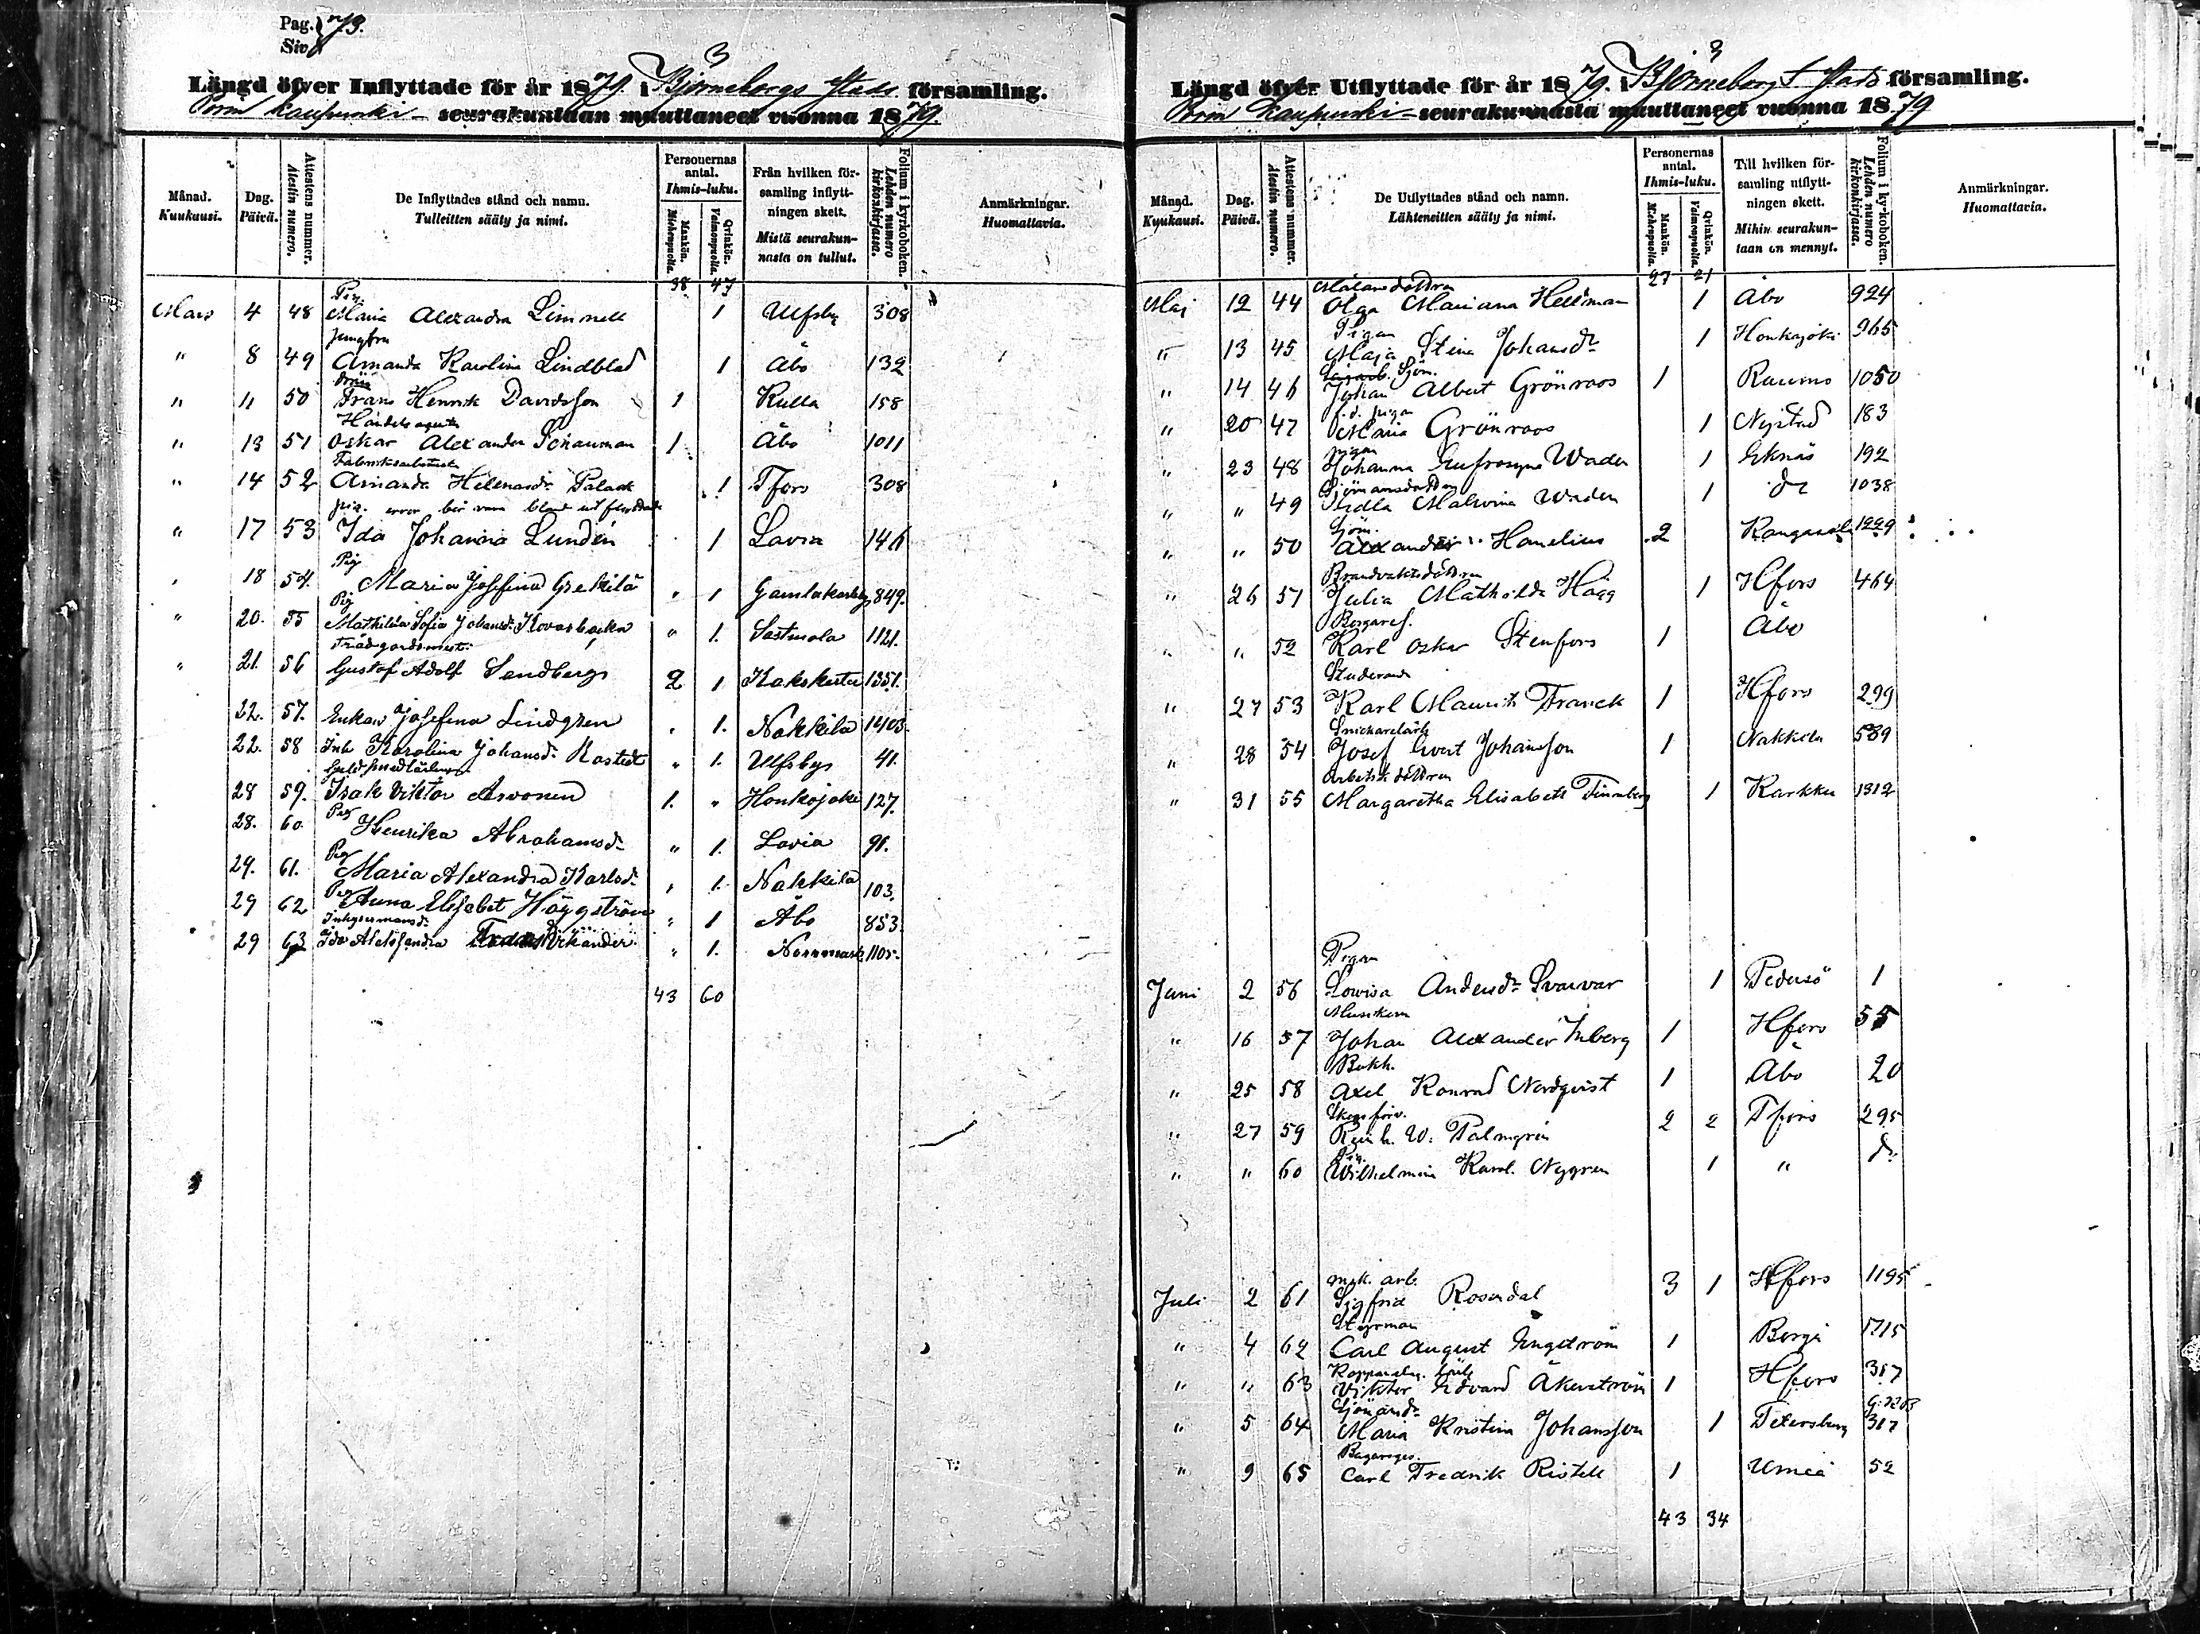 Pag. 79.
Siv.
3
Längd öfver Inflyttade för år 1879. i Björneborgs Stads församling.
Porin kaupunki- seurakuntaan muuttaneet vuonna 1879.
Månad. Kuukausi.
Dag. Päivä.
Attestens nummer. Atestin numero.
De Inflyttades stånd och namn. Tulleitten sääty ja nimi.
Personernas antal. Ihmis-luku.
Mankön. Miehenpuolta.
Qvinkön. Vaimonpuolta.
Från hvilken församling inflyttningen skett. Mistä seurakunnasta on tullut.
Folium i kyrkoboken. Lehden numero kirkonkirjassa.
Anmärkningar. Huomattavia.
38 47
Pig.
Mars 4 48 Maria Alexandra Limnell 1 Ulfsby 308
Jungfru
" 8 49 Amanda Karolina Lindblad 1 Åbo 132
" 11 50 Frans Henrik Davidsson 1 Kulla 158
Handels agenten
" 13 51 Oskar Alexander Schauman 1 Åbo 1011
Fabriksarbeterska
" 14 52 Amanda Helenasdr Palack 1 Tfors 308
pig. error bör vara bland utflyttade
" 17 53 Ida Johanna Lundén 1 Lavia 146
Pig
18 54. Maria Josefina Grekilä " 1 Gamlakarleby 849.
Pig
" 20. 55 Mathilda Sofia Johansdr Kovasbacka " 1. Sastmola 1121.
Trädgårdsmest.
" 21. 56 Gustaf Adolf Sendberg 2 1 Kakskerta 1351.
22. 57. Enkan Josefina Lindgren . 1. Nakkila 1403.
22. 58 Inh Karolina Johansd. Rostedt " 1. Ulfsby 41.
Guldsmedlärling
28 59. Isak Viktor Arvonen 1. " Honkajoki 127.
Pig
28. 60. Henrika Abrahamsdr " 1. Lavia 91.
Pig
29. 61. Maria Alexandra Karlsdr " 1. Nakkila 103.
Pig
29 62 Anna Elisabet Häggström " 1 Åbo 853.
Inhysesmansdr
29 63 Ida Aleksandra Vikander " 1. Norrmark 1105.
43 60
3
Längd öfver Utflyttade för år 1879. i Björneborgs Stads församling.
Porin kaupunki- seurakunnasta muuttaneet vuonna 1879
Månad. Kuukausi.
Dag. Päivä.
Attestens nummer. Atestin numero.
De Utflyttades stånd och namn. Lähteneitten sääty ja nimi.
Personernas antal. Ihmis-luku.
Mankön. Miehenpuolta.
Qvinkön. Vaimonpuolta.
Till hvilken församling utflyttningen skett. Mihin seurakuntaan on mennyt.
Folium i kyrkoboken. Lehden numero kirkonkirjassa.
Anmärkningar. Huomattavia.
27 21
Målaredottren
Maj 12 44 Olga Mariana Hellman 1 Åbo 924
Pigan
" 13 45 Maja Stina Johansdr 1 Honkajoki 965
Sjöm.
" 14 46 Johan Albert Grönroos 1 Raumo 1050
f.d. pigan
" 20 47 Maria Grönroos 1 Nystad 183
pigan
" 23 48 Johanna Eufrosyne Waden 1 Eknäs 192
Sjömansdottren
" " 49 Hulda Malvina Waden 1 do 1038
Sjöm.
" " 50 Alexander Hamelius 2 Kangasala 1229
Brandvaktsdottren
" 26 51 Julia Mathilda Hägg 1 Hfors 464
Borgaref.
" " 52 Karl Oskar Stenfors 1 Åbo
Studerande
" 27 53 Karl Maurits Franck 1 Hfors 299
Snickarelärl
" 28 54 Josef Evert Johansson 1 Nakkila 589
Arbetsk dottren
" 31 55 Margaretha Elisabeth Finnberg 1 Karkku 1312
Pigan
Juni 2 56 Lovisa Andersdr Svarvar 1 Pedersö 1
Musikern
" 16 57 Johan Alexander Inberg 1 Hfors 55
Bokh.
" 25 58 Axel Konrad Nordqvist 1 Åbo 20
" 27 59 Reinh. W. Palmgrén 2 2 Tfors 295
Pig.
" " 60 Wilhelmina Karol. Nygren 1 " do
mek. arb.
Juli 2 61 Sigfrid Rosendal 3 1 Hfors 1195
Styrman
" 4 62 Carl August Engström 1 Borgå 1715
Kopparslag. lärl
" " 63 Viktor Edvard Åkerström 1 Hfors 317
Sjömansdr
G. 1203
" 5 64 Maria Kristina Johansson 1 Petersburg 317
Bagareges.
" 9 65 Carl Fredrik Ristell 1 Umeå 52
43 34